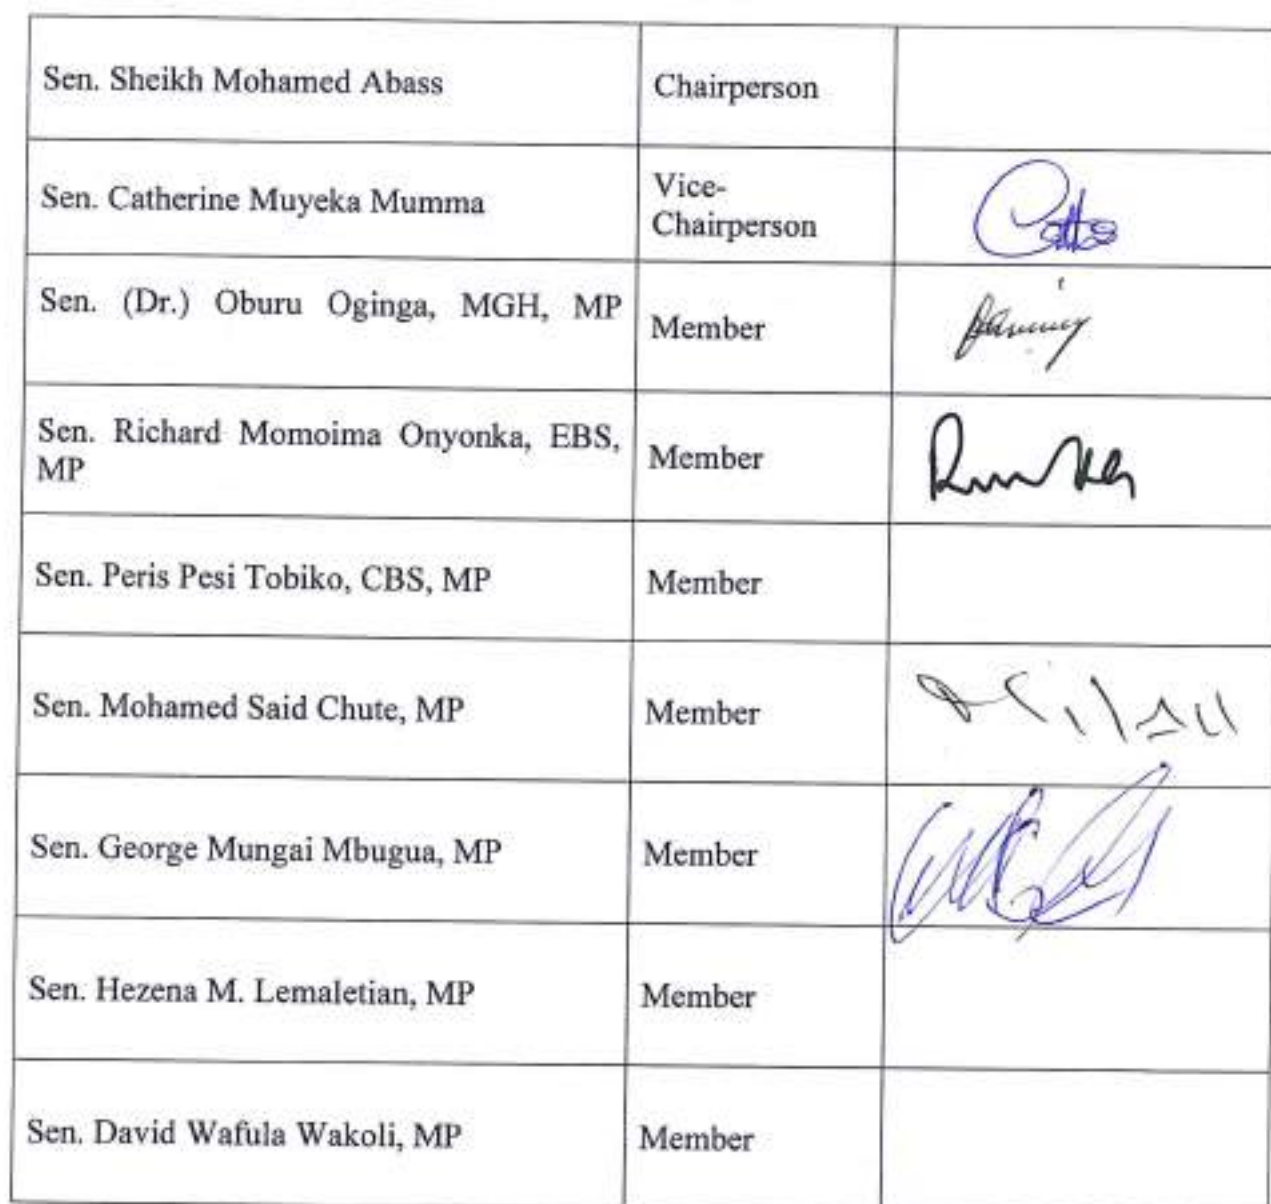 Sen. Sheikh Mohamed Abass
Chairperson
Sen. Catherine Muyeka Mumma
Vice-
Chairperson
Sen. (Dr.) Oburu Oginga, MGH, MP
Member
Sen. Richard Momoima Onyonka, EBS,
MP
Member
Sen. Peris Pesi Tobiko, CBS, MP
Member
Sen. Mohamed Said Chute, MP
Member
Sen. George Mungai Mbugua, MP
Member
Sen. Hezena M. Lemaletian, MP
Member
Sen. David Wafula Wakoli, MP
Member